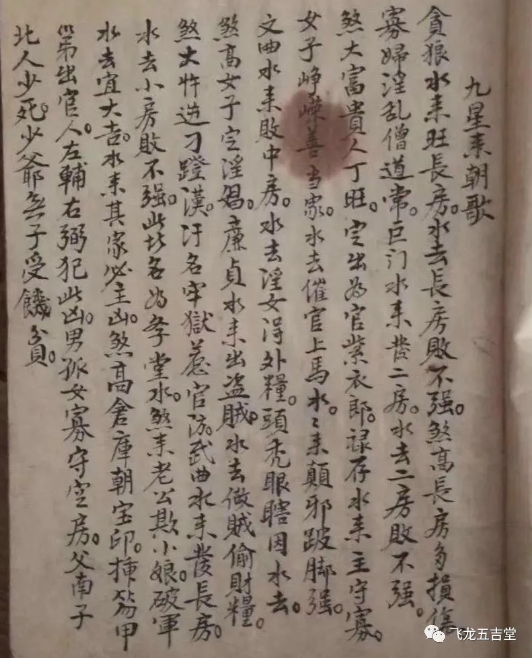 九星來朝歌
貪狼水来旺長房。水去長房敗不强。煞高長房多損傷
寡婦淫乱僧道常。巨门水来發二房。水去二房敗不强。
煞大富貴人丁旺。定出為官紫衣郎。禄存水来主守寡。
女子峥嵘善当家。水去催官上馬水。〻来顛邪跛脚强。
文曲水来敗中房。水去淫女淂外糧。頭秃眼瞎因水去。
煞高女子定淫娼。廉貞水来出盗賊。水去做賊偷財糧。
煞大忤逆刁蹬漢。汙名牢獄惹官防。武曲水来發長房。
水去小房敗不强。此坟名为孝堂水。煞来老公欺小娘。破軍
水去宜大吉。水来其家必主凶。煞高倉庫朝宝印。甲
出官人。左輔右弼犯此凶。男孤女寡守空房。父南子
北人少死。少爺無子受饑貧。
飞龙五吉堂